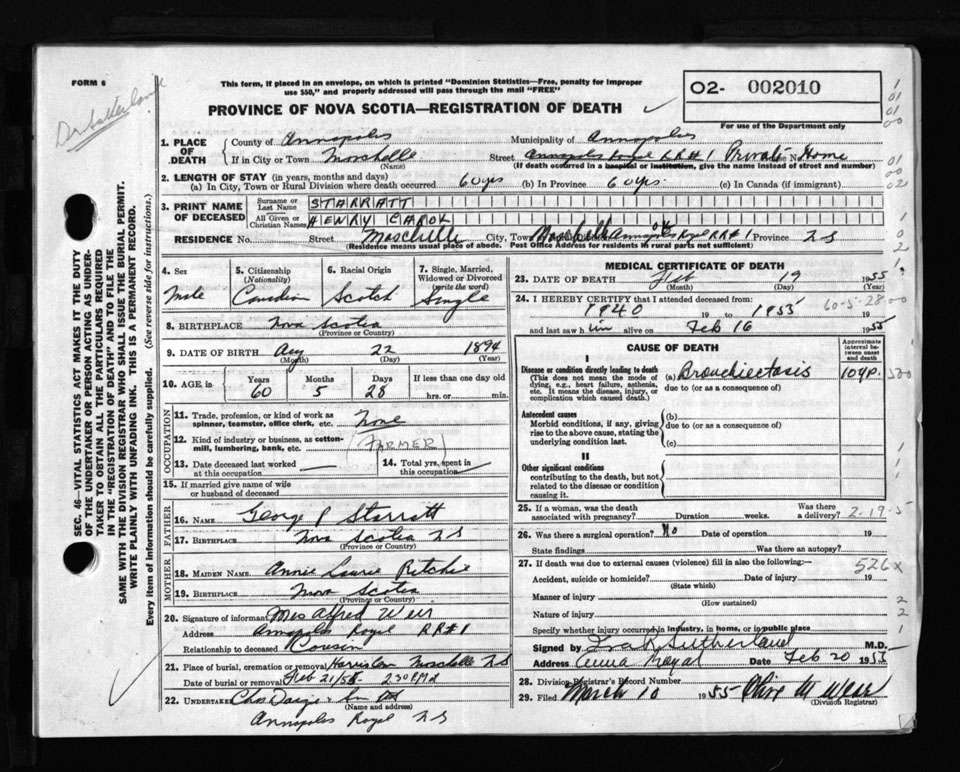 FORM 6
This form, if placed in an envelope, on which is printed "Dominion Statistics—Free, penalty for improper
use $50," and properly addressed will pass through the mail "FREE"
O2- 002010
PROVINCE OF NOVA SCOTIA—REGISTRATION OF DEATH
For use of the Department only
1. PLACE OF DEATH
County of Annapolis Municipality of Annapolis
If in City or Town Moschelle Street Annapolis Royal RR#1 Private No. Home
(Name) (If death occurred in a hospital or institution, give the name instead of street and number)
2. LENGTH OF STAY (in years, months and days)
(a) In City, Town or Rural Division where death occurred 60 yrs (b) In Province 60 yrs. (c) In Canada (if immigrant)
3. PRINT NAME OF DECEASED
Surname or Last Name STARRATT
All Given or Christian Names HENRY CAROL
RESIDENCE No. Street Moschelle City, Town Moschelle Annapolis Royl RR#1 Province NS
(Residence means usual place of abode. Post Office Address for residents in rural parts not sufficient)
4. Sex Male
5. Citizenship (Nationality) Canadian
6. Racial Origin Scotch
7. Single, Married, Widowed or Divorced (write the word) Single
8. BIRTHPLACE Nova Scotia
(Province or Country)
9. DATE OF BIRTH Aug 22 1894
(Month) (Day) (Year)
10. AGE in Years 60 Months 5 Days 28 If less than one day old
hrs. or min.
OCCUPATION
11. Trade, profession or kind of work as
spinner, teamster, office clerk, etc. None
12. Kind of industry or business, as cotton-
mill, lumbering, bank, etc. (FARMER)
13. Date deceased last worked
at this occupation
14. Total yrs. spent in
this occupation
15. If married give name of wife
or husband of deceased
FATHER
16. NAME George P Starratt
17. BIRTHPLACE Nova Scotia NS
(Province or Country)
MOTHER
18. MAIDEN NAME Annie Laurie Ritchie
19. BIRTHPLACE Nova Scotia
(Province or Country)
20. Signature of informant Mrs Alfred Weir
Address Annapolis Royal RR#1
Relationship to deceased Cousin
21. Place of burial, cremation or removal Moschelle NS
Date of burial or removal Feb 21/55 2 30 PM
22. UNDERTAKER Chas
Annapolis Royal NS
MEDICAL CERTIFICATE OF DEATH
23. DATE OF DEATH Feb 19 1955
(Month) (Day) (Year)
24. I HEREBY CERTIFY that I attended deceased from:
1940 19 to 1955 19
60-5-28
and last saw him alive on Feb 16 1955
CAUSE OF DEATH
Approximate interval between onset and death
I
Disease or condition directly leading to death
(This does not mean the mode of
dying, e.g., heart failure, asthenia,
etc. It means the disease, injury, or
complication which caused death.)
(a) Bronchiectasis 10 yr.
due to (or as a consequence of)
Antecedent causes
Morbid conditions, if any, giving
rise to the above cause, stating the
underlying condition last.
(b)
due to (or as a consequence of)
(c)
II
Other significant conditions
contributing to the death, but not
related to the disease or condition
causing it.
25. If a woman, was the death
associated with pregnancy? Duration weeks. Was there
a delivery? 2-19-5
26. Was there a surgical operation? No Date of operation 19
State findings Was there an autopsy?
27. If death was due to external causes (violence) fill in also the following:
526x
Accident, suicide or homicide? Date of injury 19
(State which)
Manner of injury
(How sustained)
Nature of injury
Specify whether injury occurred in industry, in home, or in public place
Signed by Ira R Sutherland M.D.
Address Anna Royal Date Feb 20 1955
28. Division Registrar's Record Number
29. Filed March 10 1955 Olive M Weir
(Division Registrar)
SEC. 46—VITAL STATISTICS ACT MAKES IT THE DUTY
OF THE UNDERTAKER OR PERSON ACTING AS UNDER-
TAKER TO OBTAIN ALL THE PARTICULARS REQUIRED
IN THE "REGISTRATION OF DEATH" AND TO FILE THE
SAME WITH THE DIVISION REGISTRAR WHO SHALL ISSUE THE BURIAL PERMIT.
WRITE PLAINLY WITH UNFADING INK. THIS IS A PERMANENT RECORD.
Every item of information should be carefully supplied. (See reverse side for instructions.)